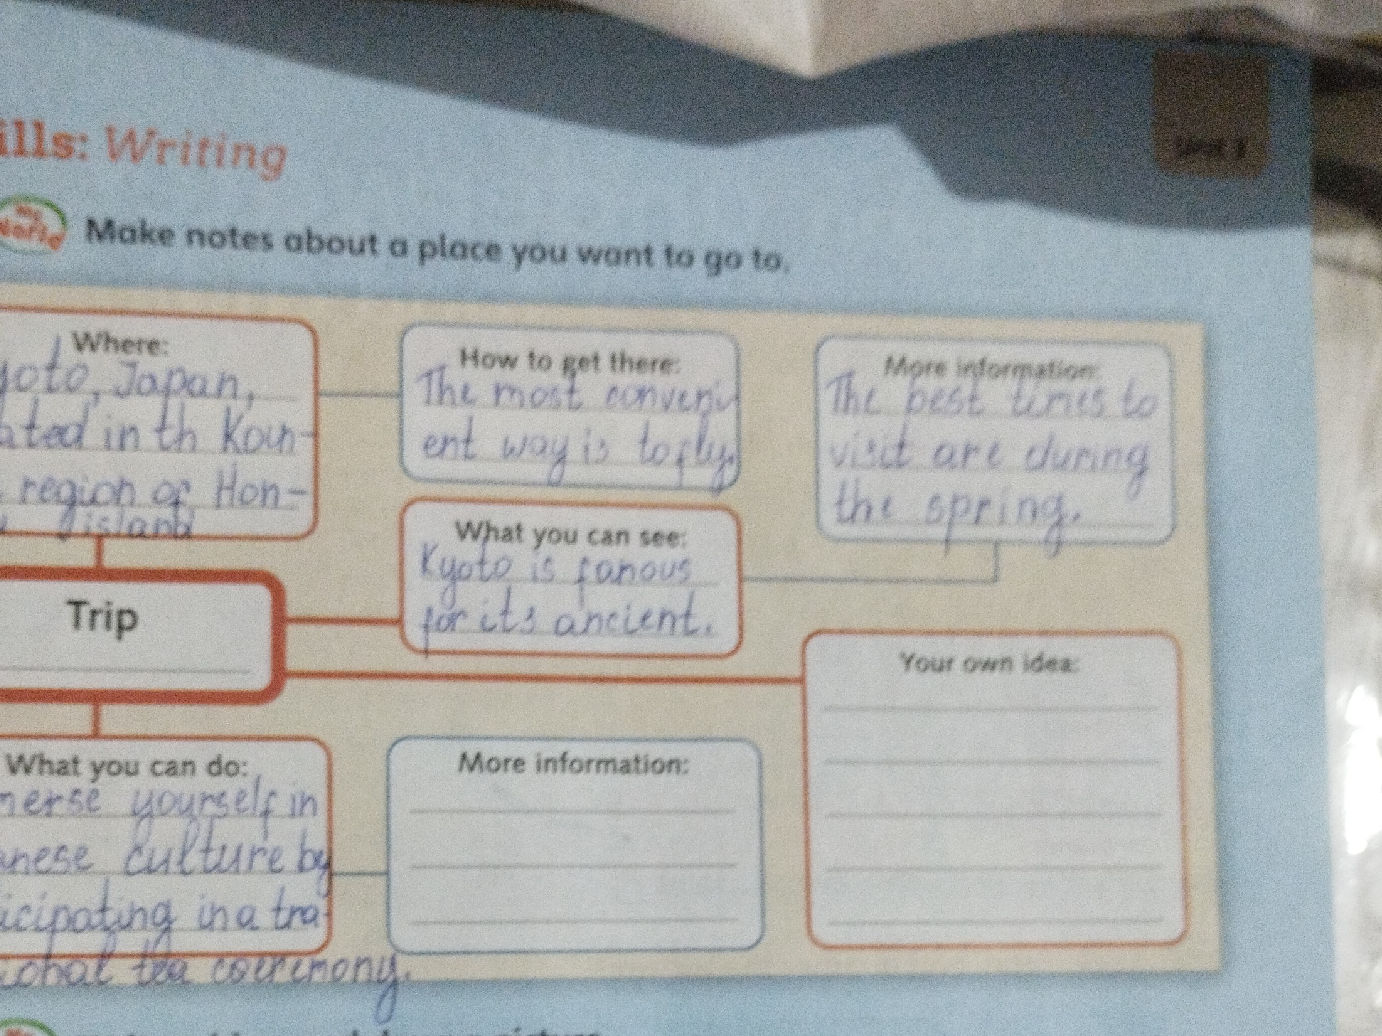 ills: Writing
Unit 1
My World
Make notes about a place you want to go to.
Where:
yoto, Japan,
ated in th Koun-
region of Hon-
island
How to get there:
The most conveni
ent way is to fly.
More information:
The best times to
visit are during
the spring.
What you can see:
Kyoto is fanous
for its ancient.
Trip
Your own idea:
What you can do:
merse yourself in
anese culture by
icipating in a tra-
ional tea coeremony.
More information: